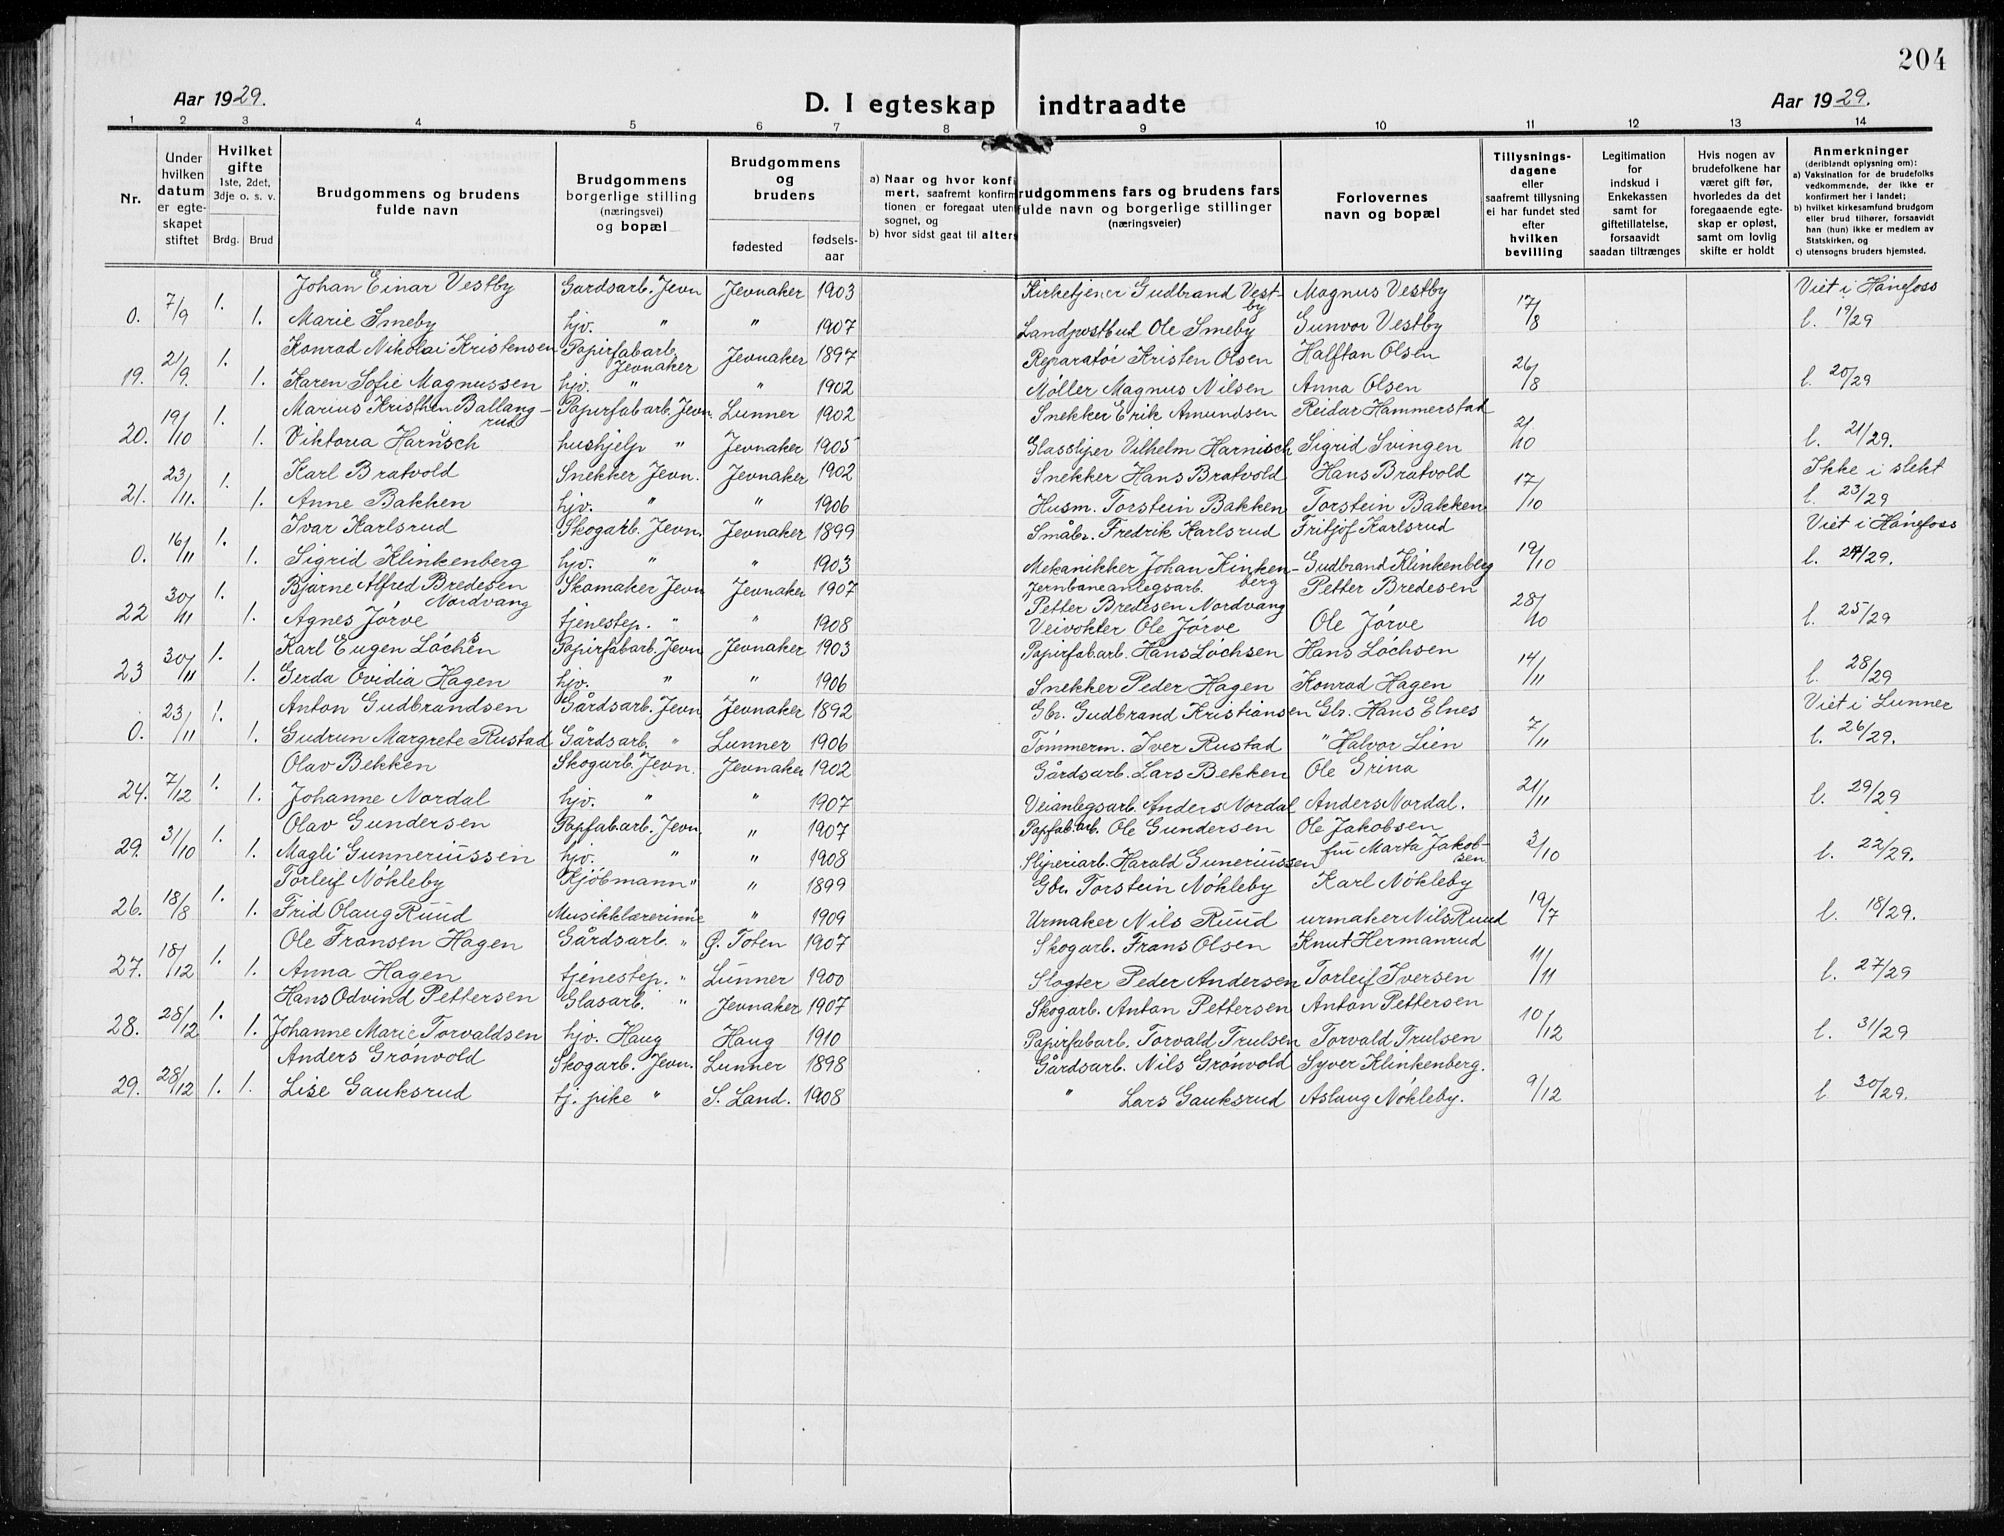 204
Aar 1929.
D. I egteskap indtraadte
Aar 1929.
1 2 3 4 5 6 7 8 9 10 11 12 13 14
Nr.
Under hvilken datum er egteskapet stiftet
Hvilket gifte 1ste, 2det, 3dje o. s. v.
Brdg. Brud
Brudgommens og brudens fulde navn
Brudgommens borgerlige stilling (næringsvei) og bopæl
Brudgommens og brudens
fødested fødselsaar
a) Naar og hvor konfi
mert, saafremt konfirm
tionen er foregaat uten
sognet, og
b) hvor sidst gaat til alters
rudgommens fars og brudens fars
fulde navn og borgerlige stillinger
(næringsveier)
Forlovernes navn og bopæl
Tillysningsdagene eller saafremt tillysning ei har fundet sted efter hvilken bevilling
Legitimation for indskud i Enkekassen samt for giftetillatelse, forsaavidt saadan tiltrænges
Hvis nogen av brudefolkene har været gift før, hvorledes da det foregaaende egteskap er opløst, samt om lovlig skifte er holdt
Anmerkninger
(deriblandt oplysning om):
a) Vaksination for de brudefolks vedkommende, der ikke er konfirmert her i landet;
b) hvilket kirkesamfund brudgom eller brud tilhører, forsaavidt han (hun) ikke er medlem av Statskirken, og
c) utensogns bruders hjemsted.
Johan Einar Vestby Gardsarb. Jevn Jevnaker 1903 Kirketjener Gudbrand Vestby Magnus Vestby Viet i Hønefoss
0. 7/9 1. 1. Marie Smeby hjv. " " 1907 Landpostbud Ole Smeby Gunvor Vestby 17/8 l. 19/29
Konrad Nikolai Kristensen Papirfabarb. Jevnaker Jevnaker 1897 Reparatør Kristen Olsen Halftan Olsen
19. 21/9. 1. 1. Karen Sofie Magnussen hjv. " " 1902 Møller Magnus Nilsen Anna Olsen 26/8 l. 20/29
Marius Kristhen Ballangrud Papirfabarb. Jevn. Lunner 1902 Snekker Erik Amundsen Reidar Hammerstad
20. 19/10 1. 1. Viktoria Harnisch hushjelp " Jevnaker 1905 Glassliper Vilhelm Harnisch Sigrid Svingen 2/10 l. 21/29.
Karl Bratvold Snekker Jevn. Jevnaker 1902 Snekker Hans Bratvold Hans Bratvold Ikke i slekt
21. 23/11. 1. 1. Anne Bakken hjv. " " 1906 Husm. Torstein Bakken Torstein Bakken 17/10 l. 23/29
Ivar Karlsrud Skogarb. Jevn. Jevnaker 1899 Småbr. Fredrik Karlsrud Fritjof Karlsrud Viet i Hønefoss
0. 16/11 1. 1. Sigrid Klinkenberg hjv. " " 1903 Mekanikker Johan Kinkenberg Gudbrand Klinkenberg 19/10 l. 24/29.
Bjarne Alfred Bredesen Nordvang Skomaker Jevn Jevnaker 1907 Jernbaneanlegsarb. Petter Bredesen Nordvang Petter Bredesen
22 30/11 1. 1. Agnes Jørve tjenestep. " " 1908 Veivokter Ole Jørve Ole Jørve 28/10 l. 25/29
Karl Eugen Løchsen Papirfabarb. Jevn Jevnaker 1903 Papirfabarb. Hans Løchsen Hans Løchsen
23 30/11 1. 1. Gerda Ovidia Hagen hjv. " " 1906 Snekker Peder Hagen Konrad Hagen 14/11 l. 28/29
Anton Gudbrandsen Gårdsarb. Jevn Jevnaker 1892 Gbr. Gudbrand Kristiansen Gbr. Hans Elnes Viet i Lunner
0. 23/11 1. 1. Gudrun Margrete Rustad Gårdsarb. " Lunner 1906 Tømmerm. Iver Rustad " Halvor Lien 7/11 l. 26/29.
Olav Bekken Skogarb. Jevn. Jevnaker 1902 Gårdsarb. Lars Bekken Ole Grina
24. 7/12 1. 1. Johanne Nordal hjv. " " 1907 Veianlegsarb. Anders Nordal Anders Nordal. 21/11 l. 29/29
Olav Gundersen Papfabarb. Jevn. " 1907 Papfabarb. Ole Gundersen Ole Jakobsen
29. 31/10 1. 1. Magli Gunneriussen hjv. " " 1908 Sliperiarb. Harald Guneriussen fru Marta Jakobsen 3/10 l. 22/29.
Torleif Nøkleby Kjøbmann " " 1899 Gbr. Torstein Nøkleby Karl Nøkleby
26. 18/8 1. 1. Frid Olaug Ruud Musikklærerinne " 1909 Urmaker Nils Ruud urmaker Nils Ruud 19/7 l. 18/29.
Ole Fransen Hagen Gårdsarb. " Ø. Toten 1907 Skogarb. Frans Olsen Knut Hermanrud
27. 18/12 1. 1. Anna Hagen tjenestep. " Lunner 1900 Slagter Peder Andersen Torleif Iversen 11/11 l. 27/29
Hans Odvind Pettersen Glasarb. " Jevnaker 1907 Skogarb. Anton Pettersen Anton Pettersen
28. 28/12 1. 1. Johanne Marie Torvaldsen hjv. Haug Haug 1910 Papirfabarb. Torvald Trulsen Torvald Trulsen 10/12 l. 31/29
Anders Grønvold Skogarb. Jevn. Lunner 1898 Gårdsarb. Nils Grønvold Syver Klinkenberg.
29. 28/12 1. 1. Lise Gauksrud tj. pike " S. Land. 1908 " Lars Gauksrud Aslaug Nøkleby. 9/12 l. 30/29.